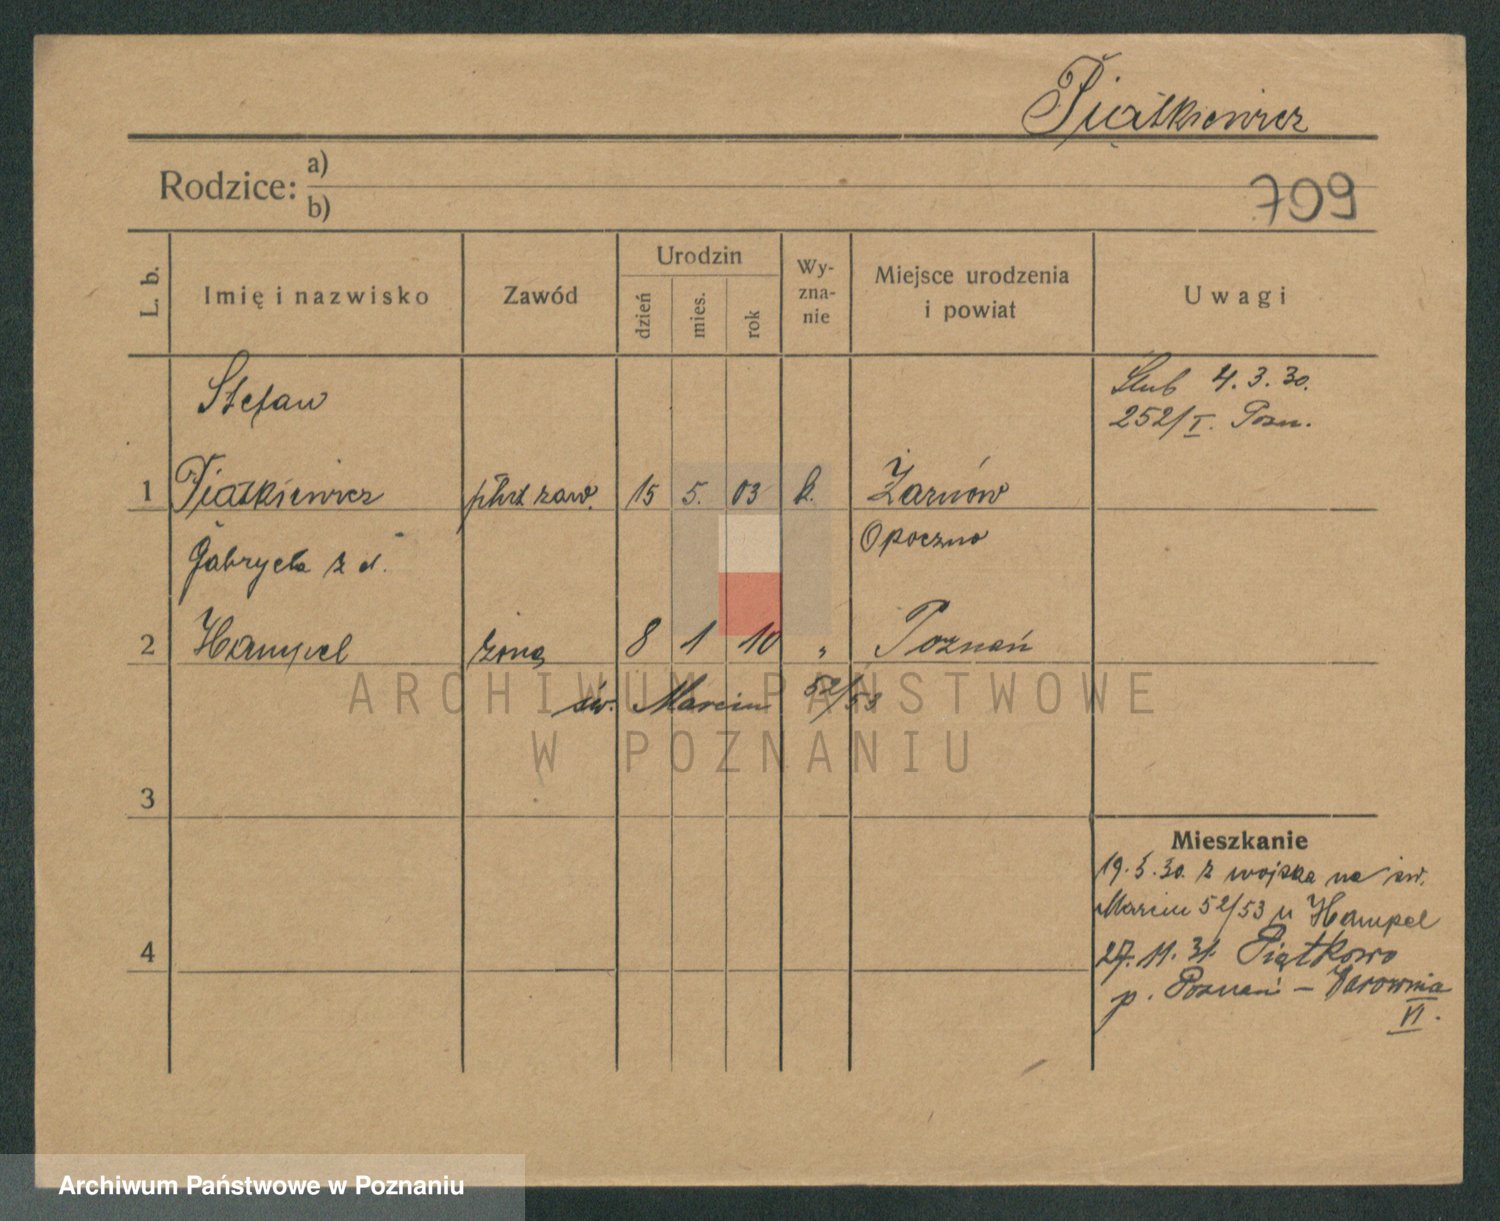 Piątkiewicz
Rodzice: a)
b)
709
L. b.
Imię i nazwisko
Zawód
Urodzin
dzień
mies.
rok
Wy-
zna-
nie
Miejsce urodzenia
i powiat
Uwagi
Stefan
Ślub 4.3.30.
252/I. Pozn.
1 Piątkiewicz zaw. 15 5. 03 k. Żarnów
Opoczno
Gabryela z d.
2 Hampel żona 8 1 10 " Poznań
św. Marcin 52/53
3
4
Mieszkanie
19.5.30. z wojska na św.
Marcin 52/53 u Hampel
27.11.31. Piątkowo
p. Poznań –
VI.
ARCHIWUM PAŃSTWOWE
W POZNANIU
Archiwum Państwowe w Poznaniu